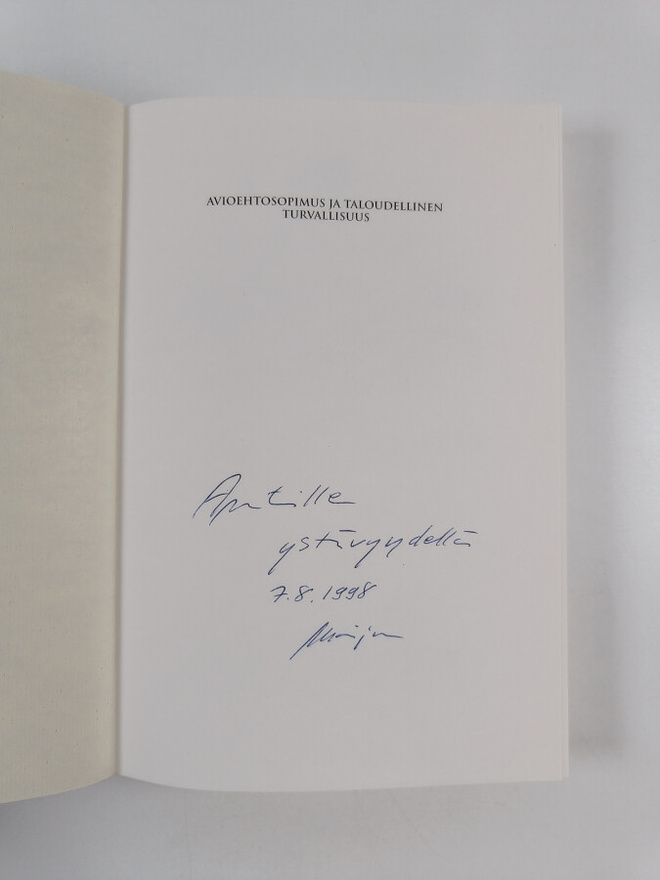 AVIOEHTOSOPIMUS JA TALOUDELLINEN
TURVALLISUUS
Antille
ystävyydellä
7.8.1998
Maija